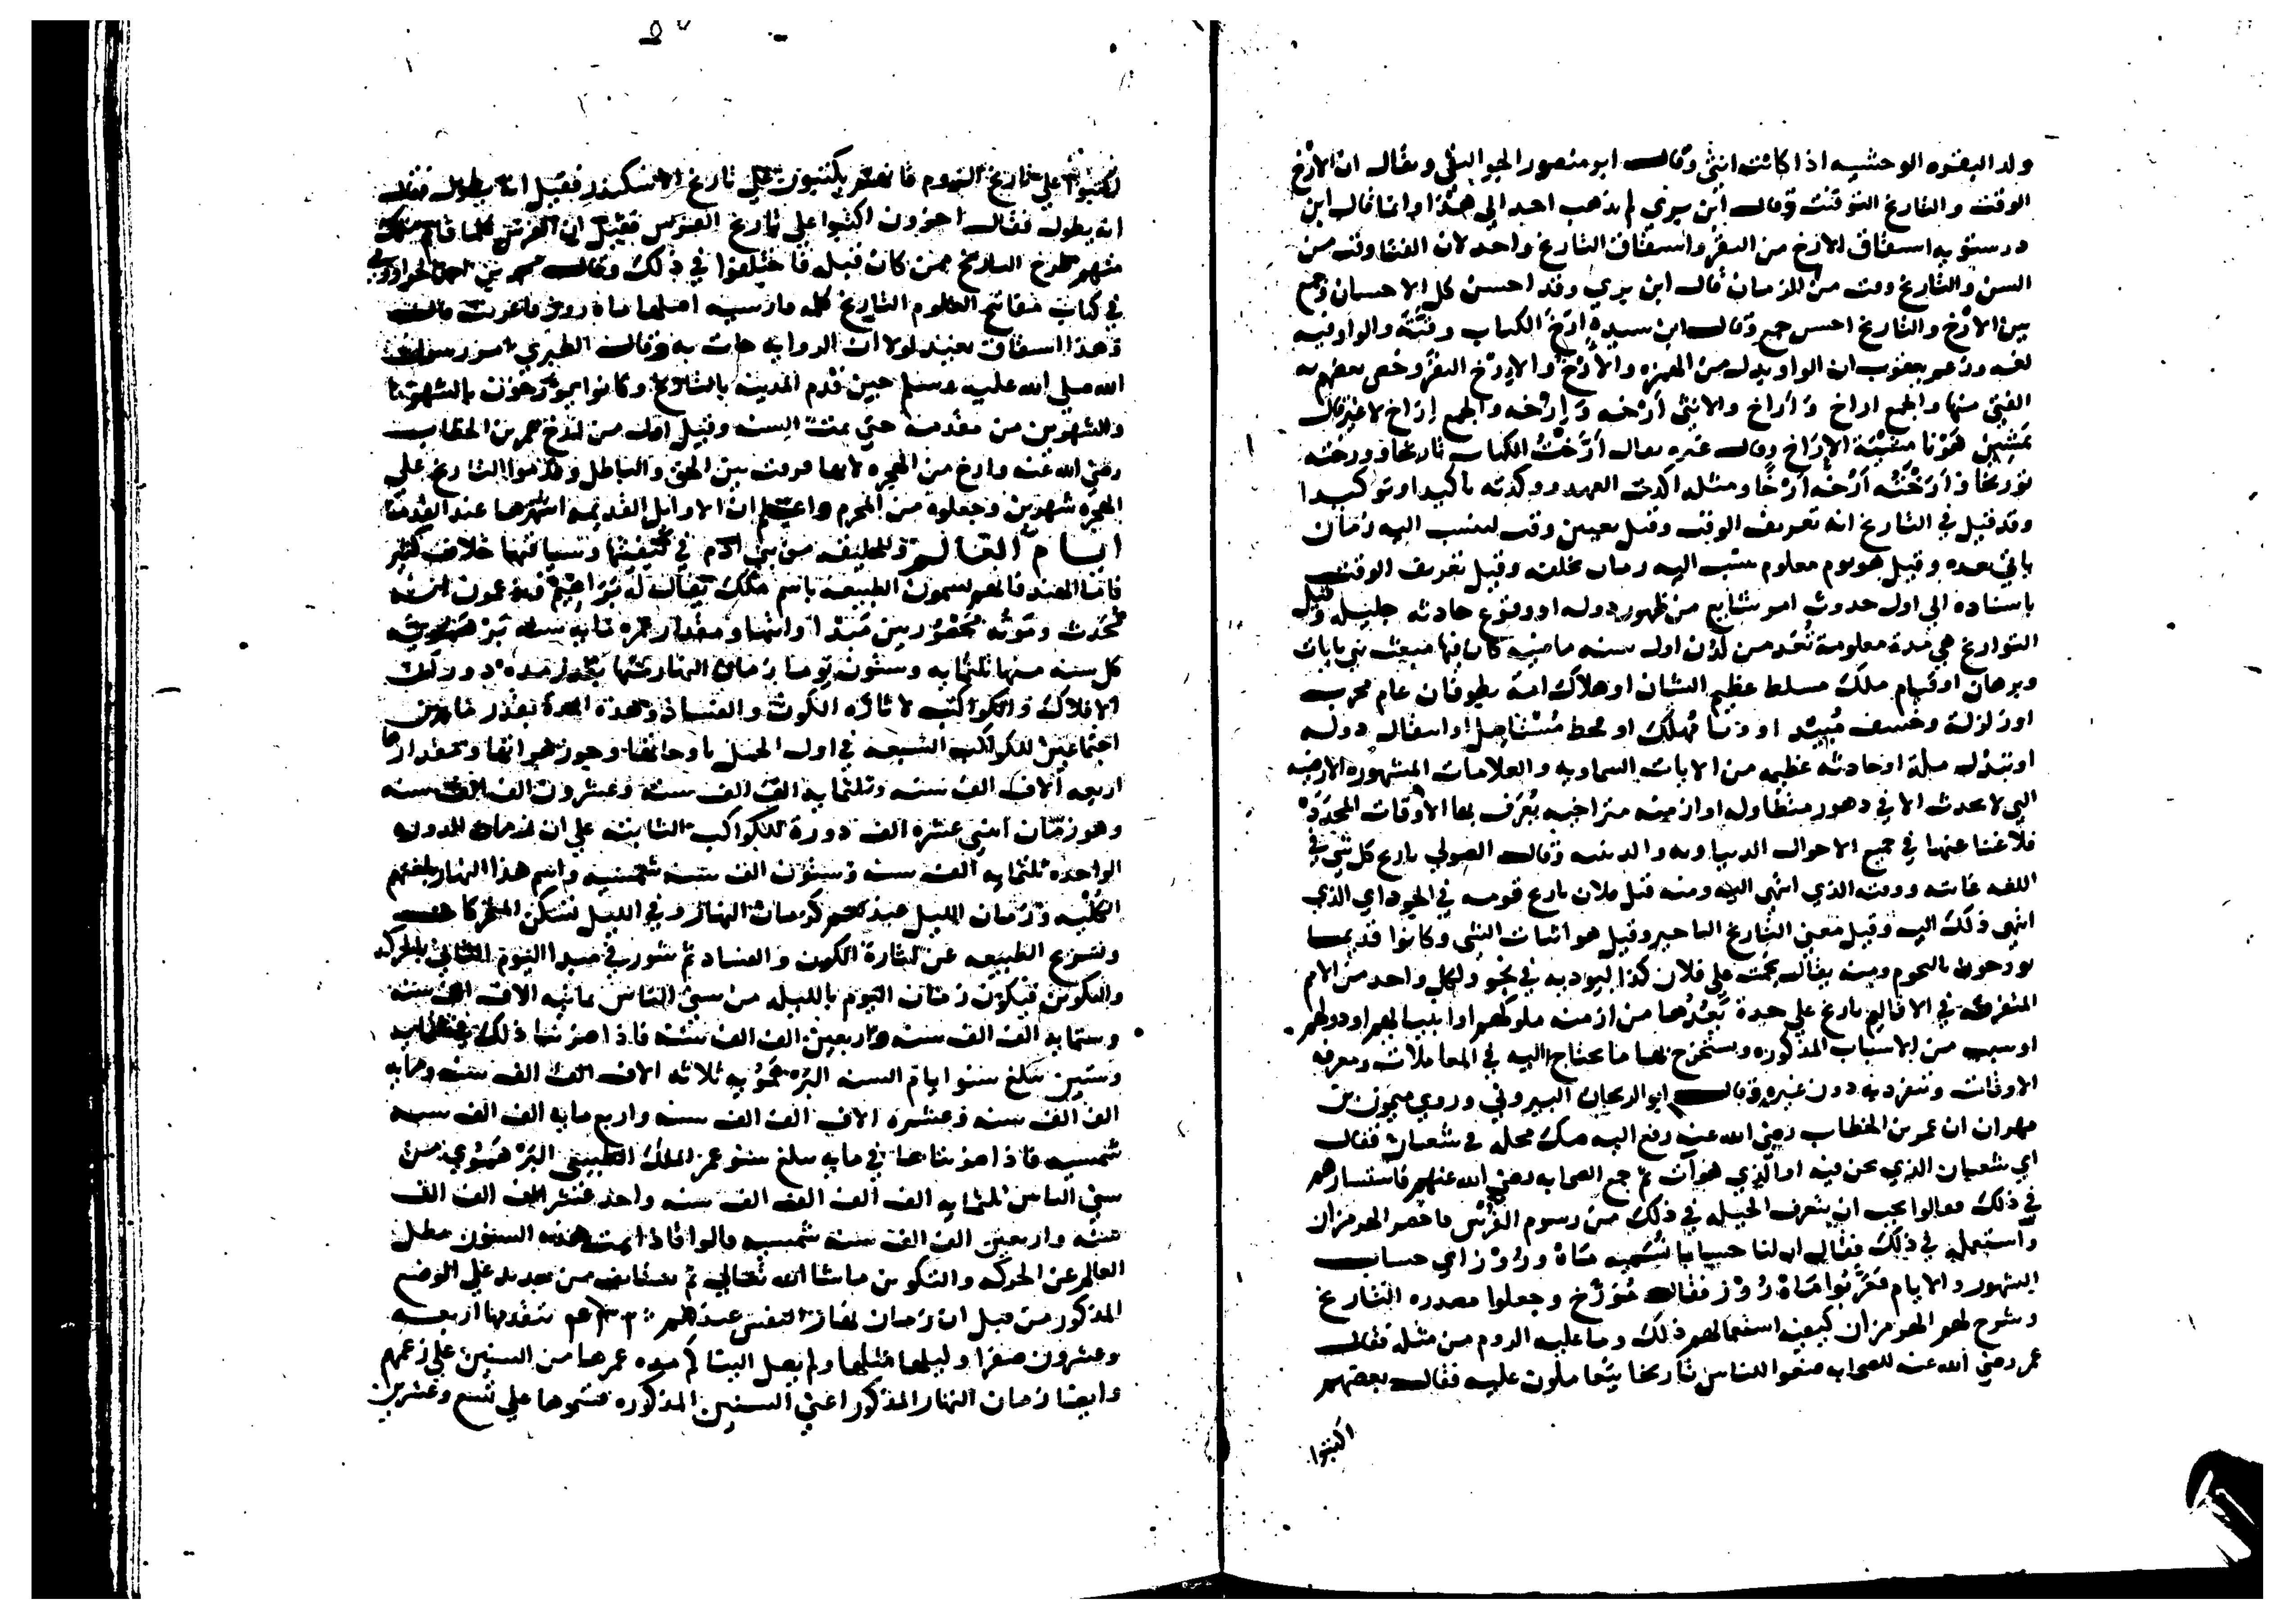 ولد البقره الوحشيه اذا كانت انثى وقال ابو منصور الجواليقي ويقال ان الارخ
الوقت والتاريخ التوقيت وقال ابن بري لم يذهب احد الي هذا وانما قال ابن
درستويه اشتقاق الارخ من البقر واشتقاق التاريخ واحد لان الفتا وقت من
السن والتاريخ وقت من الزمان قال ابن بري وقد احسن كل الاحسان وجمع
بين الارخ والتاريخ احسن جمع وقال ابن سيده ارخ الكتاب وقته والواو فيه
لغه وزعم يعقوب ان الواو بدل من الهمزه والارخ والارخ البقر وخص بعضهم به
الفتي منها والجمع اراخ وآراخ والانثي ارخه وإرخه والجمع إراخ لا غير قال
يمشين هونا مشية الإراخ وقال غيره يقال ارخت الكتاب تاريخا وورخته
توريخا وأرخته أرخه أرخا ومثله اكدت العهد ووكدته تاكيدا وتوكيدا
وقد قيل في التاريخ انه تعريف الوقت وقيل تعيين وقت لينسب اليه زمان
ياتي بعده وقيل هو يوم معلوم نسب اليه زمان يخلفه وقيل تعريف الوقت
باسناده الي اول حدوث امر شايع من ظهور دوله او وقوع حادثه جليله وقيل
التواريخ هي مدة معلومة تعد من لدن اول سنه ماضيه كان فيها مبعث نبي بايات
وبرهان او قيام ملك مسلط عظيم الشان او هلاك امة بطوفان عام مخرب
او زلزلة وخسف مبيد او وبا مهلك او قحط مستاصل او انتقال دوله
او تبدل ملة او حادثه عظيمه من الايات السماويه والعلامات المشهوره الارضيه
التي لا تحدث الا في دهور متطاوله او ازمنه متراخيه يعرف بها الاوقات المحدده
فلا غنا عنها في جميع الاحوال الدنياويه والدينيه وقال الصولي تاريخ كل شي في
اللغه غايته ووقته الذي انتهي اليه ومنه قيل فلان تاريخ قومه في الجود اي الذي
انتهي ذلك اليه وقيل معني التاريخ التاخير وقيل هو اثبات الشي وكانوا قديما
يورخون بالنجوم ومنه يقال نجمت علي فلان كذا ليوديه في نجو ولكل واحد من الامم
المتفرقه في الاقاليم تاريخ علي حدة يعدها من ازمنه ملوكهم او انبيايهم او دولهم
او سبب من الاسباب المذكوره ويستخرج بها ما يحتاج اليه في المعاملات ومعرفه
الاوقات وتنفرد به دون غيره وقال ابو الريحان البيروني وروي ميمون بن
مهران ان عمر بن الخطاب رضي الله عنه رفع اليه صك محله في شعبان فقال
اي شعبان الذي نحن فيه او الذي هو آت ثم جمع الصحابه رضي الله عنهم فاستشارهم
في ذلك فقالوا يجب ان يتعرف الحيله في ذلك من رسوم الفرس فاحضر الهرمزان
واستعمله في ذلك فقال ان لنا حسابا نسميه ماه وروز اي حساب
الشهور والايام فعربوا ماه روز فقالو مورخ وجعلوا مصدره التاريخ
وشرح لهم الهرمزان كيفيه استعمالهم ذلك وما عليه الروم من مثله فقال
عمر رضي الله عنه للصحابه ضعوا للناس تاريخا يتعاملون عليه فقال بعضهم
اكتبوا
اكتبوا علي تاريخ الروم فانهم يكتبون علي تاريخ الاسكندر فقيل انه يطول فقال
انه يطول فقال اخرون اكتبوا علي تاريخ الفرس فقيل ان الفرس كلما قام ملك
منهم طرح التاريخ ممن كان قبله فاختلفوا في ذلك وقال
في كتاب مفاتح العلوم التاريخ كلمه فارسيه اصلها ماه روز فاعربت قال
وهذا اشتقاق بعيد لولا ان الروايه جات به وقال الطبري امر رسول
الله صلي الله عليه وسلم حين قدم المدينه بالتاريخ وكانوا يورخون بالشهر
والشهرين من مقدمه حتي تمت السنه وقيل اول من ارخ عمر بن الخطاب
رضي الله عنه وارخ من الهجره لانها فرقت بين الحق والباطل وقدموا التاريخ علي
الهجره شهرين وجعلوه من المحرم واعلم ان الاوايل القديمه اشهرها عند القدما
ايام العالم وللخليقه من بني ادم في كيفيتها وسياقتها خلاف كثير
فاما الهند فانهم يسمون الطبيعه باسم ملك يقال له براهيم فيزعمون انه
محدث وموته محصور بين مبدا وانتها ومقدار عمره مايه سنه برهمويه
كل سنه منها ثلثمايه وستون يوما زمان النهار منها بقدر مده دوران
الافلاك والكواكب لاثاره الكون والفساد وهذه المدة بقدر ما بين
اجتماعين للكواكب السبعه في اول الحمل باوجاتها وجوزهراتها ومقدارها
اربعه آلاف الف سنه وثلثمايه الف الف سنه وعشرون الف الف سنه
وهو زمان اثني عشره الف دورة للكواكب الثابته علي ان زمان الدوره
الواحده ثلثمايه الف سنه وستون الف سنه شمسيه واسم هذا النهار بلغتهم
الكلبه وزمان الليل عندهم كزمان النهار وفي الليل تسكن المتحركات
وتستريح الطبيعه عن اثارة الكون والفساد ثم تثور في مبدا اليوم الثاني بالحركه
والتكوين فيكون زمان اليوم بالليله من سني الناس ثمانيه الاف الف سنه
وستمايه الف الف سنه واربعين الف الف سنه فاذا ضربنا ذلك في ثلثمايه
وستين تبلغ سنو ايام السنه البرهمويه ثلاثه الاف الف الف سنه ومايه
الف الف سنه وعشره الاف الف الف سنه واربع مايه الف الف سنه
شمسيه فاذا ضربناها في مايه بلغ سنو عمر الملك الطبيعي البرهموي من
سني الناس ثلثمايه الف الف الف الف سنه واحد عشر الف الف الف
سنه واربعين الف الف سنه شمسيه قالوا فاذا تمت هذه السنون بطل
العالم عن الحركه والتكوين ماشا الله تعالي ثم يستانف من جديد علي الوضع
المذكور من قبل ان زمان نهار النفس عندهم يتقدمها اربعه
وعشرون صفرا وليلها مثلها ولم يصل الينا كم مده عمرها من السنين علي زعمهم
وايضا زمان النهار المذكور اعني السنين المذكوره قسموها علي تسع وعشرين